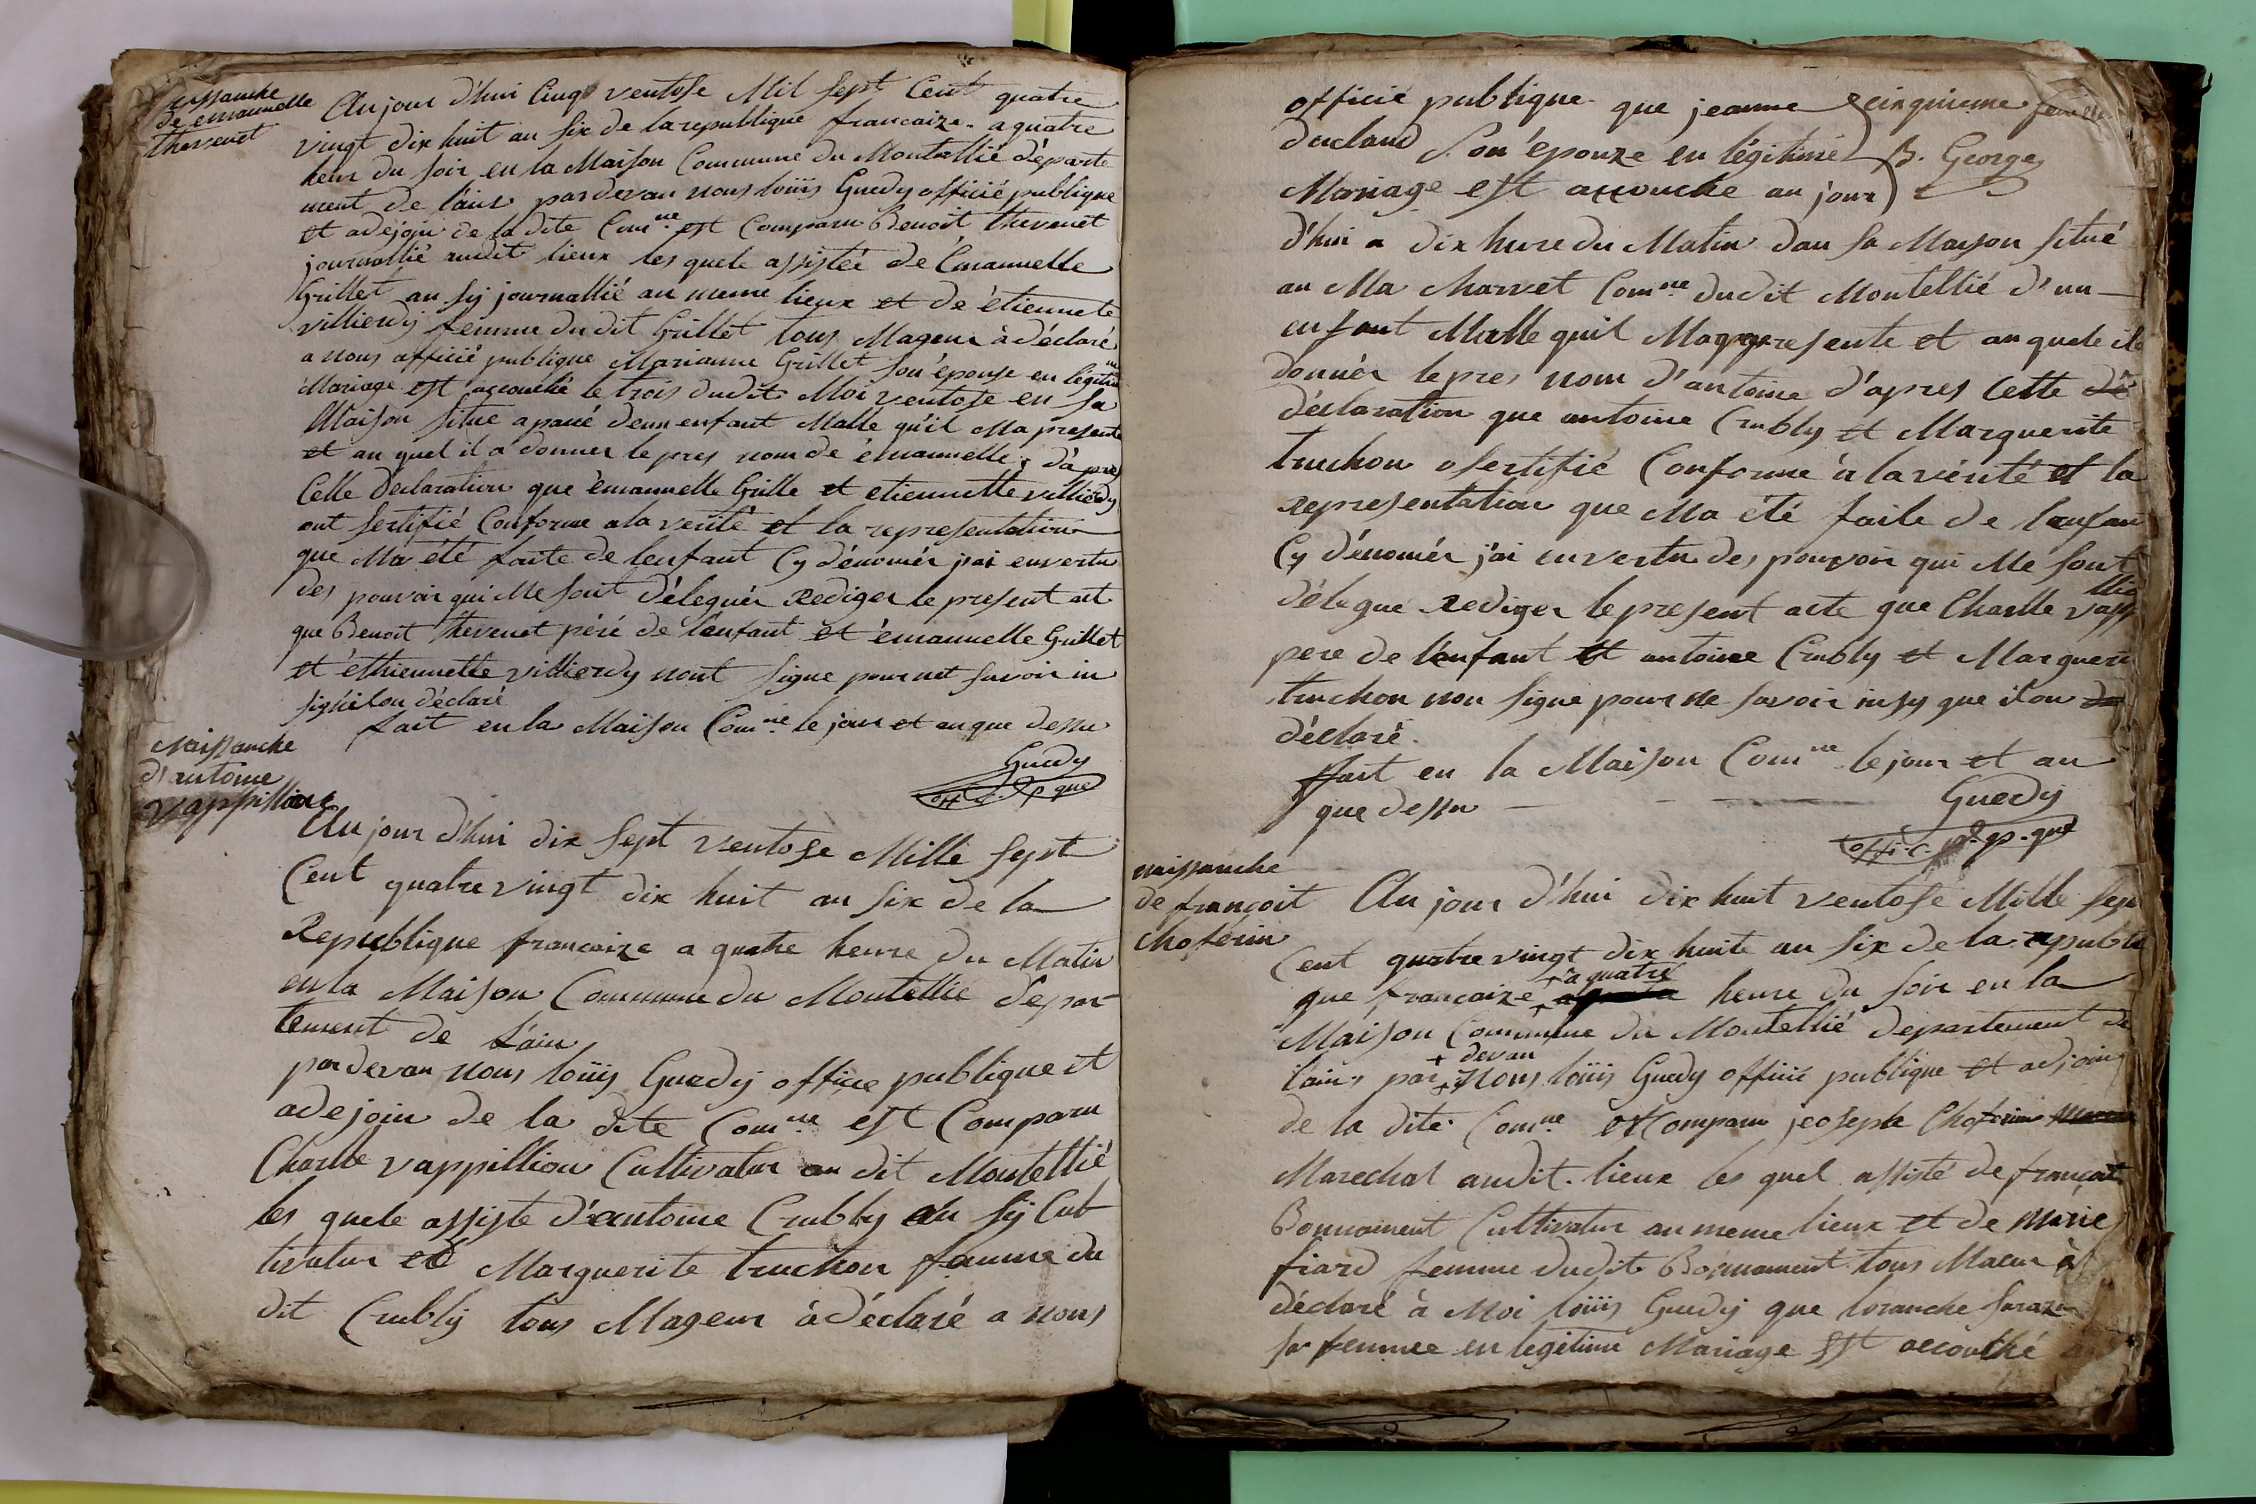 naissanche
de emanuelle
thevenet
Au jour d'hui Cinq ventose Mil Sept Cent quatre
vingt dix huit an six de la republique francaize a quatre
heur du soir en la Maison Commune du Montellié departe
ment de l'ain par devan nous loüis Guedy officié publique
et adejoin de la dite Com.ne est Comparu Benoit thevenet
journallié audit lieux les quele assistée de Emanuelle
Grillet au sy journallié au meme lieux et de étiennete
villierdy femme du dit Grillet tous Mageur à déclaré
a nous officié publique Marianne Grillet son épouse en légitime
Mariage est accouché le trois dudit Moi ventose en sa
Maison situe a paué deun enfant Malle qu'il Ma presente
et au quel il a donner le pres nom dé émanuelle d'apres
Celle déclaration que émanuelle Grille et etiennette villierdy
ont sertifié Conforme a la verité et la representation
que Ma été faite de lenfant Cy dénomér jai envertu
des pouvoir qui Me sont déleguér Rediger le present act
que Benoit thevenet péré de l'enfant et émanuelle Grillet
et éthiennette villierdy nont signe pour net savoir in
sighilon déclaré
fait en la Maison Com.ne le jour et an que dessu
Guedy
off. c. p. que
Naissanche
d'antoine
vappillion
Au jour d'hui dix sept ventose Mille sept
Cent quatre vingt dix huit an six de la
Republique francaize a quatre heure du Matin
en la Maison Commune du Montellié depar
tement de l'ain
par devan nous loüis Guedy office publique et
adejoin de la dite Com.ne est Comparu
Charlle vappillion Cultivatur au dit Montellié
les quele assiste d'antoine Crubly au sy Cul
tivatur et Marguerite truchon famme du
dit Crubly tous Mageur à déclaré a nous
officié publique que jeanne
duclaud son épouze en légitime
Mariage est accouche au jour
cinquieme feuillet
B. George
d'hui a dix hure du Matin dan sa Maison situé
au Ma Charvet Com.ne dudit Montellié d'un
enfant Malle quil Ma presente et au quele ila
donnér le pres nom d'antoine d'apres Cette de
déclaration que antoine Crubly et Marguerite
truchon o sertifié Conforme à la vérité et la
representation que Ma été faite de lenfan
Cy dénomér j'ai en vertu des pouvoir qui Me sont
délegué rediger le present acte que Charlle vappillio
pere de l'enfant et antoine Crubly et Marguerit
truchon non signe pour ne savoir insy que ilon de
déclaré
ffait en la Maison Com.ne le jour et an
que dessu
Guedy
offi. c. p. que
naissanche
de françoit
Choferin
Au jour d'hui dix huit ventose Mille sept
Cent quatre vingt dix huite an six de la republi
que francaize + a quatre heure du soir en la
Maison Commune du Montellié departement de
l'ain par + devan nous loüis Guedy officié publique et adjoin
de la dite Com.ne est Comparu jeoseph Choferin
Marechal audit lieux les quel assisté de françoit
Bonnament Cultivatur au meme lieux et de Marie
fiard femme dudit Bonnament tous Maeur à
déclaré à Moi loüis Guedy que loranche sarazin
sa femmee en legitime Mariage est accouché